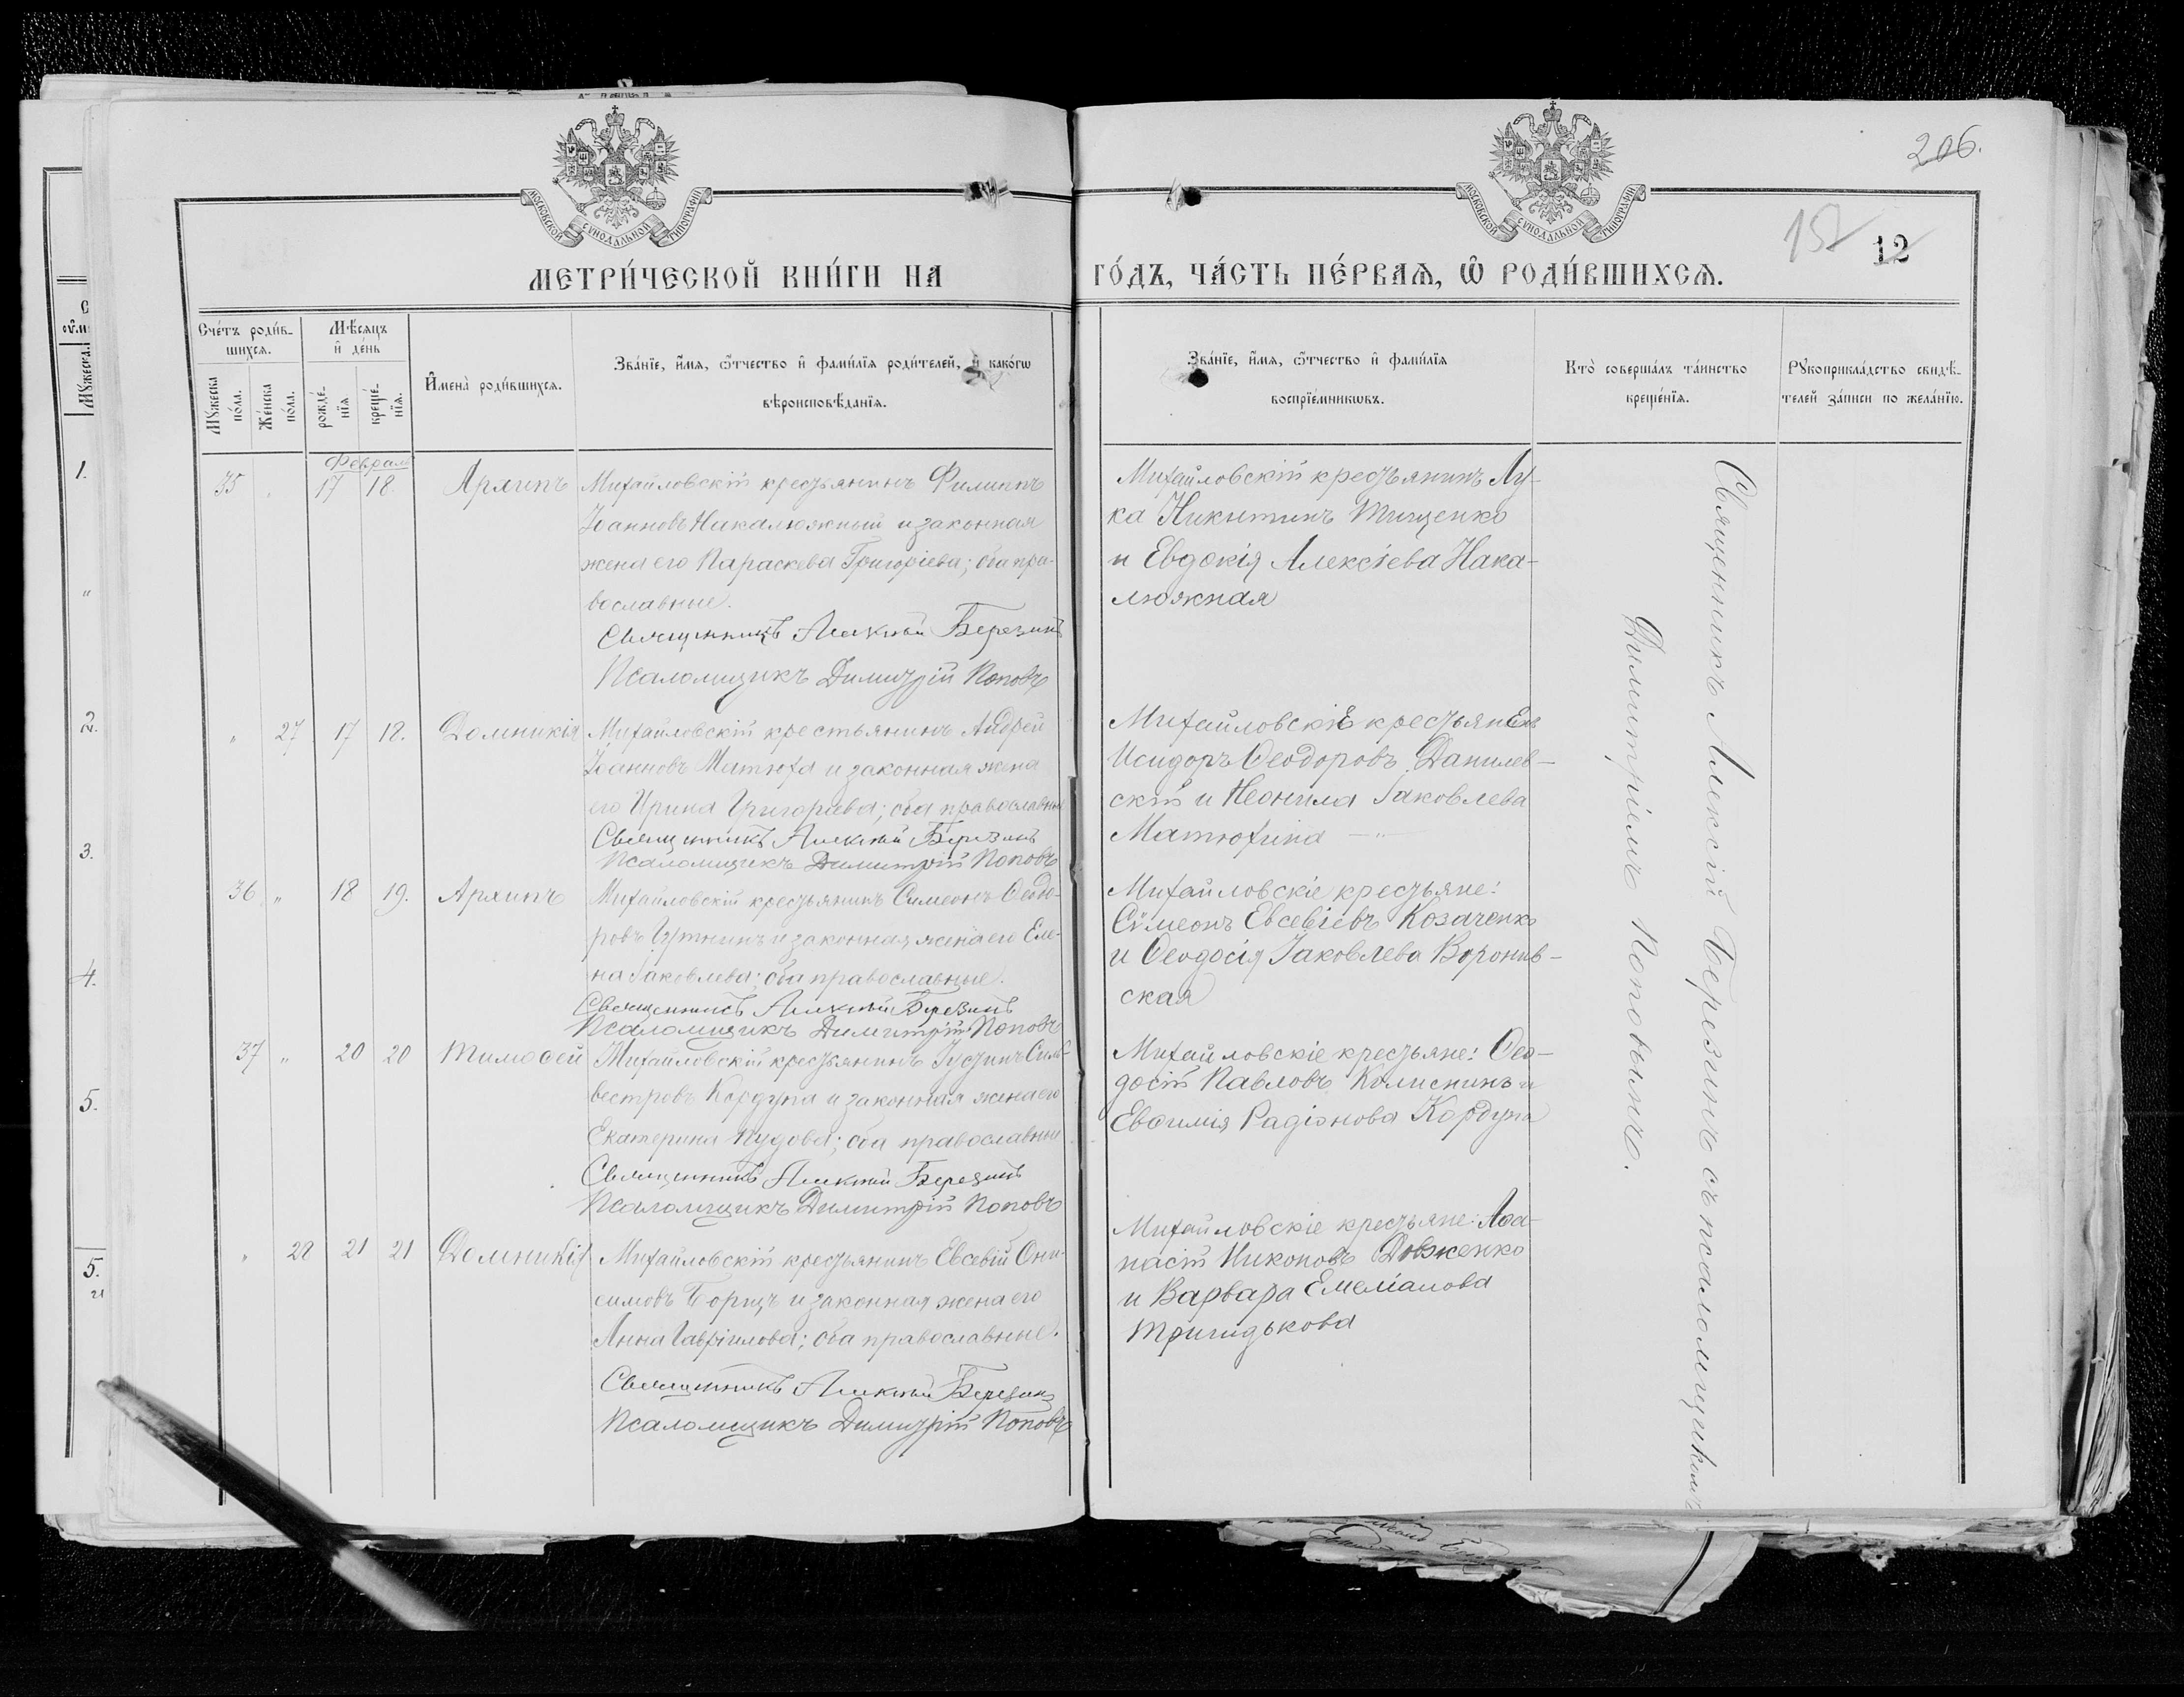 206.
157
12
МОСКОВСКОЙ СѴНОДАЛЬНОЙ ТИПОГРАФІИ
МОСКОВСКОЙ СѴНОДАЛЬНОЙ ТИПОГРАФІИ
МЕТРИ́ЧЕСКОЙ КНИ́ГИ НА
ГО́ДЪ, ЧА́СТЬ ПЕ́РВАѦ, Ѿ РОДИ́ВШИХСѦ.
Сче́тъ роди́в-
шихсѧ.
Мꙋжеска по́ла.
Же́нска по́ла.
Мѣ́сѧцъ
и҆ де́нь
рожде́-
нїѧ
креще́-
нїѧ.
И҆мена̀ роди́вшихсѧ.
Зва́нїе, и҆́мѧ, ѻ҆́тчество и҆ фами́лїѧ роди́телей, и҆ како́гѡ
вѣроисповѣ́данїѧ.
Зва́нїе, и҆́мѧ, ѻ҆́тчество и҆ фами́лїѧ
воспрїе́мникѡвъ.
Кто̀ соверша́лъ та́инство
креще́нїѧ.
Рꙋкоприкла́дство свидѣ́-
телей за́писи по жела́нїю.
Февраль
35 " 17 18. Архипъ
Михайловскій крестьянинъ Филиппъ
Іоанновъ Накалюжный и законная
жена его Параскева Григоріева; оба пра-
вославные.
Священникъ Алексій Березинъ
Псаломщикъ Димитрій Поповъ
Михайловскій крестьянинъ Лу-
ка Никитинъ Тищенко
и Евдокія Алексіева Нака-
люжная
" 27 17 18. Домникія
Михайловскій крестьянинъ Андрей
Іоанновъ Матюха и законная жена
его Ирина Григоріева; оба православные
Священникъ Алексій Березинъ
Псаломщикъ Димитрій Поповъ
Михайловскіе крестьяне
Исидоръ Ѳеодоровъ Данилев-
скій и Неонила Іаковлева
Матюхина — " —
36 " 18 19. Архипъ
Михайловскій крестьянинъ Симеонъ Ѳеодо-
ровъ и законная жена его Еле-
на Іаковлева; оба православные.
Священникъ Алексій Березинъ
Псаломщикъ Димитрій Поповъ
Михайловскіе крестьяне:
Сѵмеонъ Евсевіевъ Козаченко
и Ѳеодосія Іаковлева Воронив-
ская
37 " 20 20 Тимоѳей
Михайловскій крестьянинъ Іустинъ Силь-
вестровъ Кордупа и законная жена его
Екатерина Иудова; оба православные
Священникъ Алексій Березинъ
Псаломщикъ Димитрій Поповъ
Михайловскіе крестьяне: Ѳео-
досій Павловъ Колиснинъ и
Евѳимія Радіонова Кордупа
" 28 21 21 Домникія
Михайловскій крестьянинъ Евсевій Они-
симовъ Борщъ и законная жена его
Анна Гавріилова; оба православные.
Священникъ Алексій Березинъ
Псаломщикъ Димитрій Поповъ
Михайловскіе крестьяне: Аѳа-
насій Никоновъ Довженко
и Варвара Емеліанова
Тригидькова
Священникъ Алексій Березинъ съ псаломщикомъ
Димитріемъ Поповымъ.
1.
"
2.
3.
4.
5.
5.
и